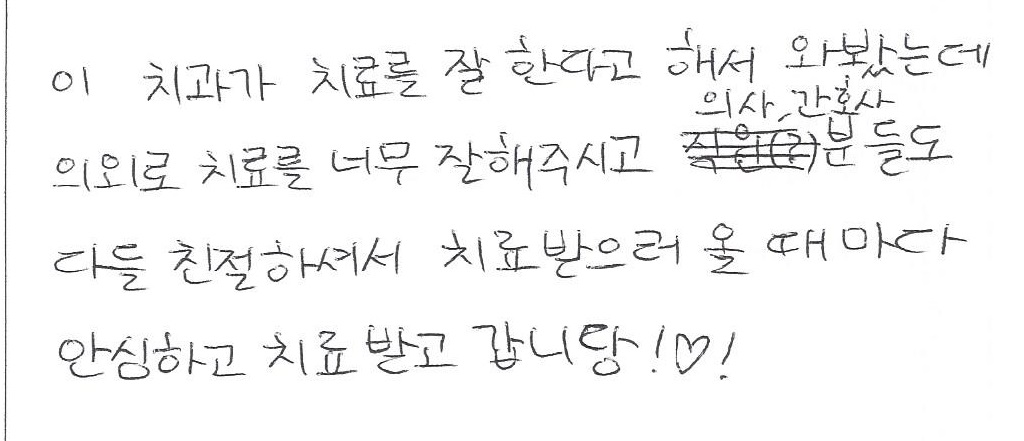 이 치과가 치료를 잘 한다고 해서 와봤는데
의사, 간호사
의외로 치료를 너무 잘해주시고 직원(?)분들도
다들 친절하셔서 치료받으러 올 때마다
안심하고 치료받고 갑니당!♡!